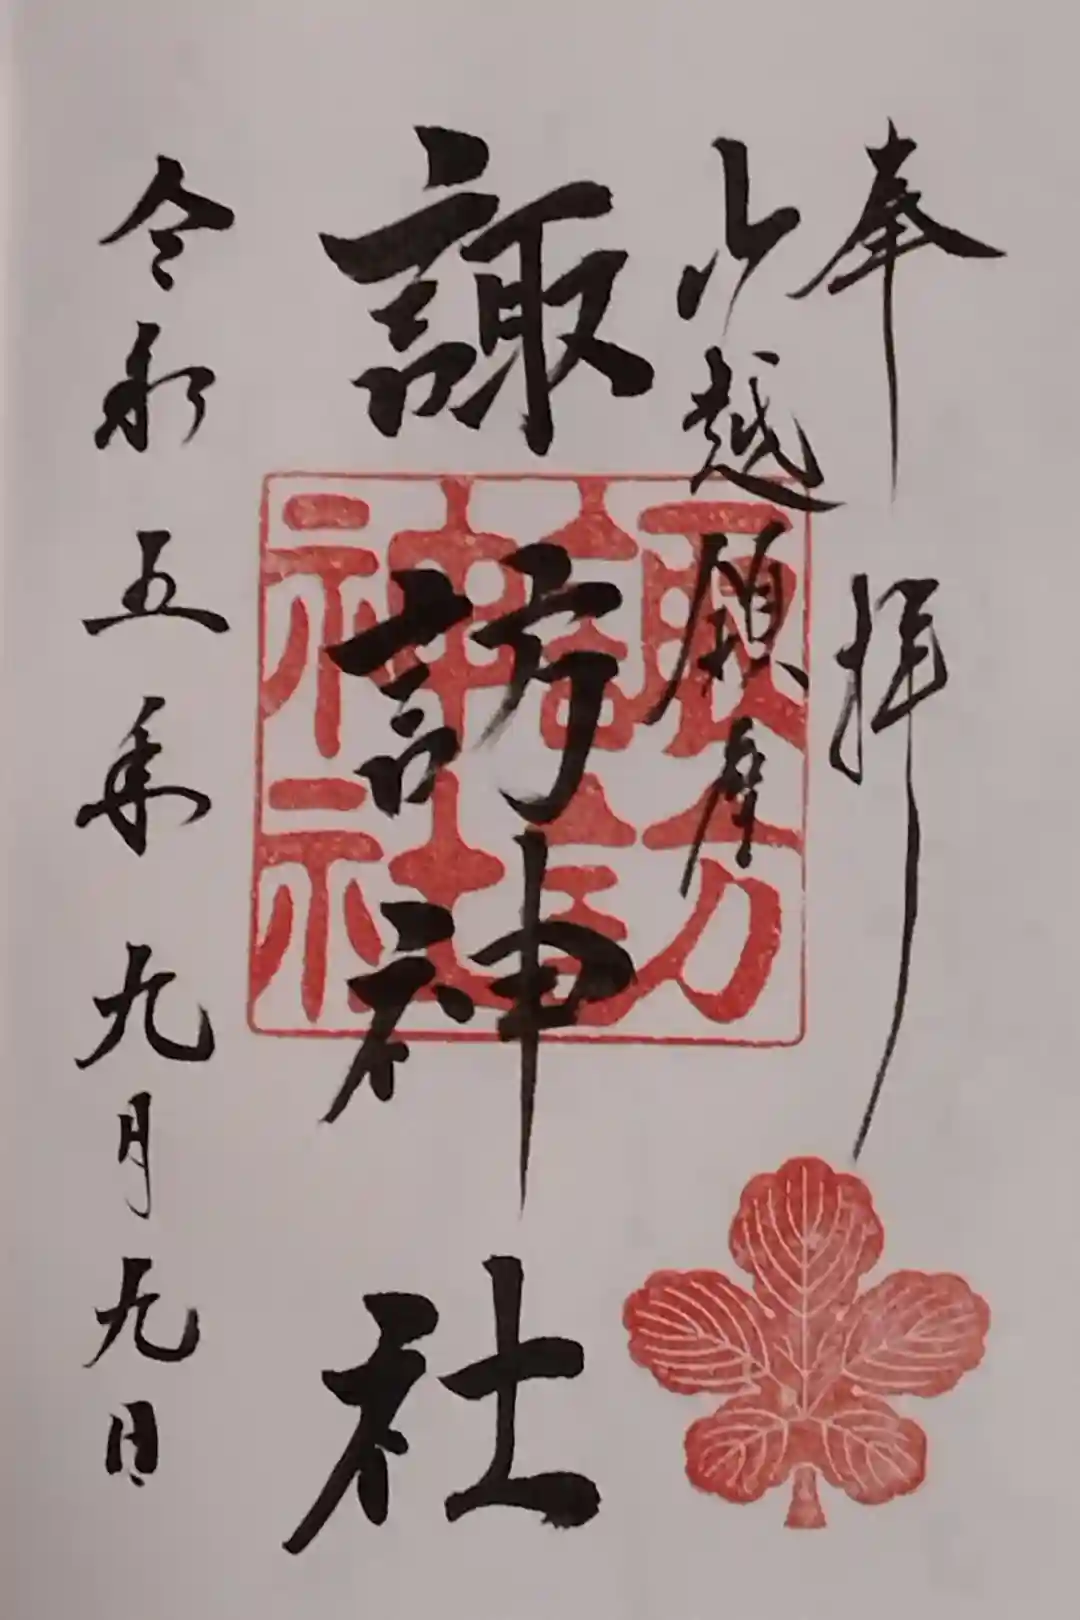 奉拝
越
諏訪神社
諏訪
神社
令和五年九月九日